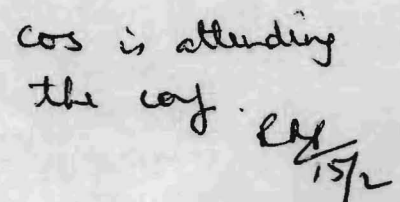 cos is attending
the conf.
15/2